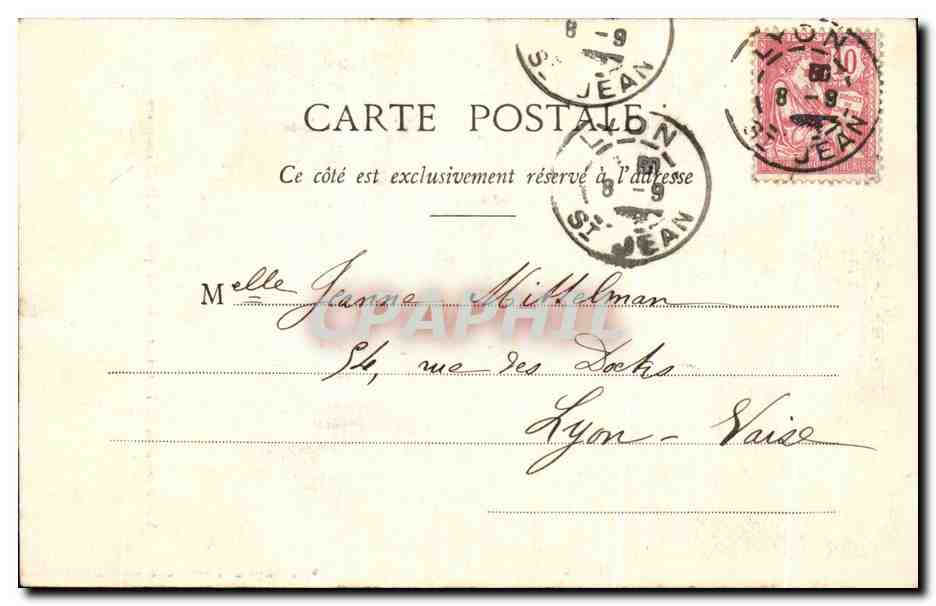 8 -9
ST JEAN
LYON
10
8 -9
ST JEAN
CARTE POSTALE
LYON
8 -9
ST JEAN
Ce côté est exclusivement réservé à l'adresse
Melle Jeanne Mittelman
CPAPHIL
54, rue des Docks
Lyon - Vaise